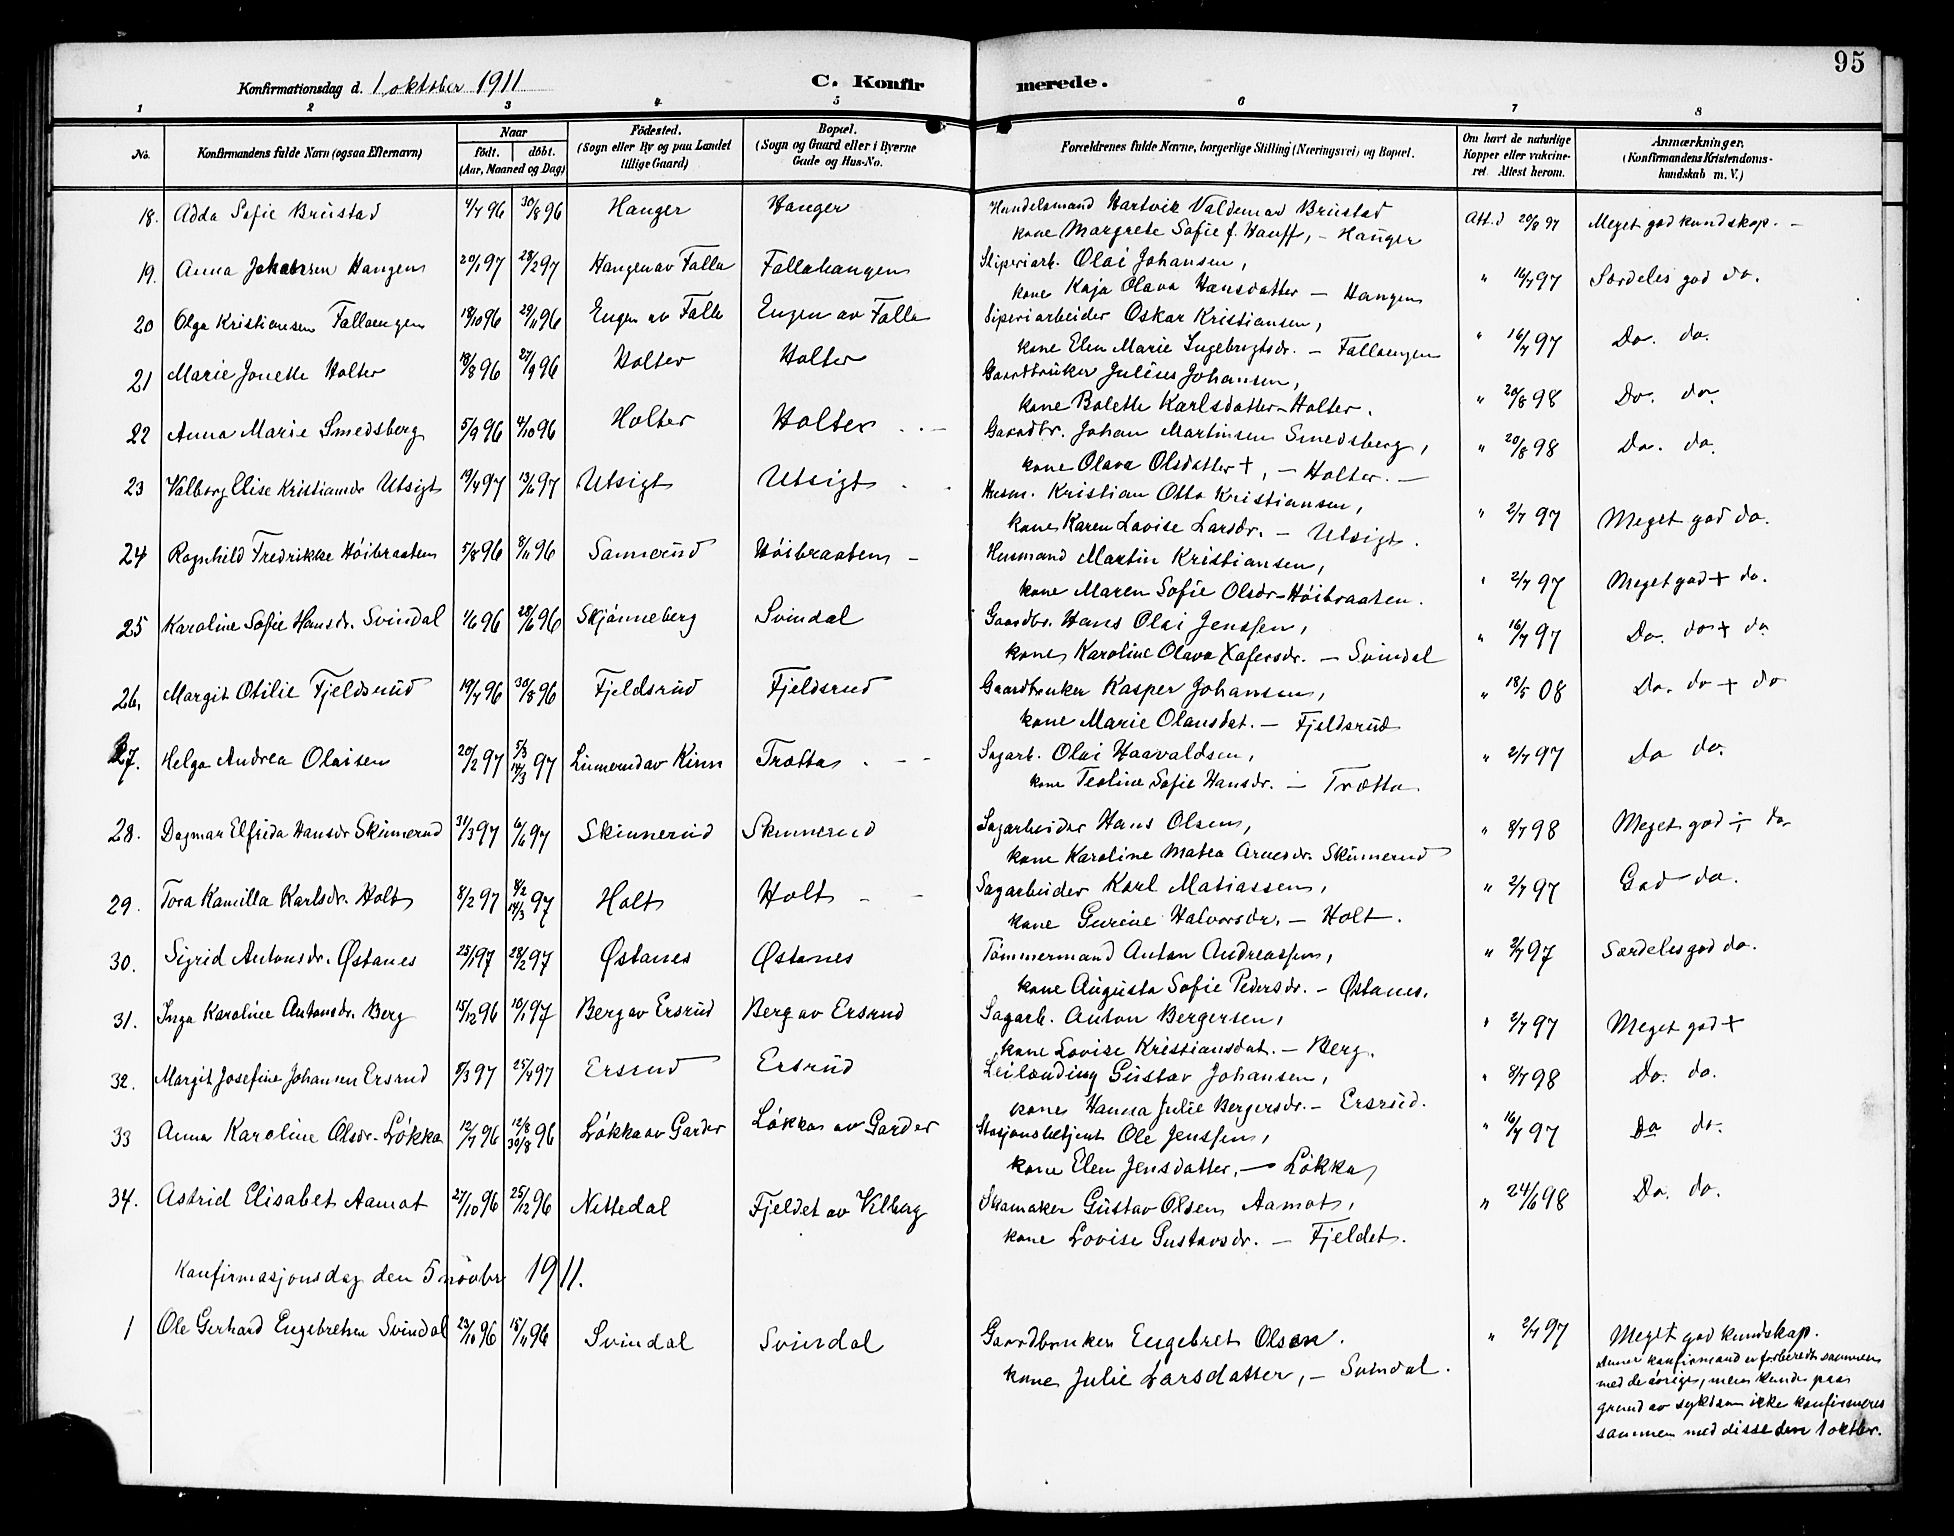 95
Konfirmationsdag d. 1 oktober 1911 C. Konfirmerede.
1 2 3 4 5 6 7 8
No. Konfirmandens fulde Navn (ogsaa Efternavn) Naar födt. döbt. (Aar, Maaned og Dag) Födested. (Sogn eller By og paa Landet tillige Gaard) Bopæl. (Sogn og Gaard eller i Byerne Gade og Hus-No. Forældrenes fulde Navne, borgerlige Stilling (Næringsvei) og Bopæl. Om havt de naturlige Kopper eller vakcineret. Attest herom. Anmærkninger. (Konfirmandens Kristendomskundskab m. V.)
18. Adda Sofie Brustad 4/7 96 30/8 96 Hanger Hanger Handelsmand Hartvik Valdemar Brustad Att. d 20/8 97 Meget god kundskap. –
kone Margrete Sofie f. Hauff, – Hanger
19. Anna Johansen Hangen 20/1 97 28/2 97 Hangen av Falla Fallahangen Sliperiarb. Olai Johansen, " 16/7 97 Særdeles god do.
kone Kaja Olava Hansdatter – Hangen
20 Olga Kristiansen Fallaengen 18/10 96 29/11 96 Engen av Falla Engen av Falla Sliperiarbeider Oskar Kristiansen, " 16/7 97 Do. do.
kone Elen Marie Ingebrigtsdr. – Fallaengen
21 Marie Jonette Holter 18/8 96 27/9 96 Holter Holter Gaardbruker Julius Johansen, " 20/8 98 Do. do.
kone Bolette Karlsdatter – Holter.
22 Anna Marie Smedsberg 5/9 96 4/10 96 Holter Holter Gaardbr. Johan Martinsen Smedsberg, " 20/8 98 Do. do.
kone Olava Olsdatter +, – Holter. –
23 Valborg Elise Kristiansdr Utsigt 19/4 97 13/6 97 Utsigt Utsigt Husm. Kristian Otto Kristiansen, " 2/7 97 Meget god do.
kone Karen Lovise Larsdr. – Utsigt.
24 Ragnhild Fredrikke Høibraaten 5/8 96 8/11 96 Sannerud Høibraaten – Husmand Martin Kristiansen, " 2/7 97 Meget god + do.
kone Maren Sofie Olsdr – Høibraaten.
25 Karoline Sofie Hansdr. Svindal 1/6 96 28/6 96 Skjønneberg Svindal Gaardbr. Hans Olai Jenssen, " 16/7 97 Do. do + do
kone Karoline Olava – Svindal
26. Margit Otilie Fjeldsrud 19/7 96 30/8 96 Fjeldsrud Fjeldsrud Gaardbruker Kasper Johansen, " 18/5 08 Do. do + do
kone Marie Olausdat. – Fjeldsrud
27. Helga Andrea Olaisen 20/2 97 5/3 14/3 97 Linnerud av Kinn Trætta Sagarb. Olai Haavaldsen, " 2/7 97 Do do.
kone Teoline Sofie Hansdr. – Trætta
28. Dagmar Elfrida Hansdr Skinnerud 31/3 97 6/6 97 Skinnerud Skinnerud Sagarbeider Hans Olsen, " 8/7 98 Meget god ÷ do
kone Karoline Matea Arnesdr. Skinnerud
29. Tora Kamilla Karlsdr. Holt 8/2 97 8/2 14/3 97 Holt Holt – – Sagarbeider Karl Matiassen, " 2/7 97 God do.
kone Gurine Halvorsdr. – Holt.
30. Sigrid Antonsdr. Østanes 25/1 97 28/2 97 Østanes Østanes Tømmermand Anton Andreassen, " 2/7 97 Særdeles god do.
kone Augusta Sofie Pedersdr. – Østanes.
31. Inga Karoline Antonsdr. Berg 15/12 96 10/1 97 Berg av Ersrud Berg av Ersrud Sagarb. Anton Bergersen, " 2/7 97 Meget god +
kone Lovise Kristiansdat. – Berg.
32. Margit Josefine Johansen Ersrud 5/3 97 25/4 97 Ersrud Ersrud Leilænding Gustav Johansen, " 8/7 98 Do. do.
kone Hanna Julie Bergersdr. – Ersrud.
33 Anna Karoline Olsdr. Løkka 12/7 96 12/8 30/8 96 Løkka av Garder Løkka av Garder Stasjonsbetjent Ole Jenssen, " 16/7 97 Do do.
kone Elen Jensdatter, – Løkka
34. Astrid Elisabet Aamot 27/10 96 25/12 96 Nittedal Fjeldet av Vilberg Skomaker Gustav Olsen Aamot, " 24/6 98 Do. do.
kone Lovise Gustavsdr. – Fjeldet.
Konfirmasjonsdag den 5 novbr 1911.
1 Ole Gerhard Engebretsen Svindal 23/10 96 15/11 96 Svindal Svindal Gaardbruker Engebret Olsen. " 2/7 97 Meget god kundskap.
kone Julie Larsdatter, – Svindal.
Denne konfirmand er forberedt sammen
med de øvrige, men kunde paa
grund av sykdom ikke konfirmeres
sammen med disse den 1 oktbr.